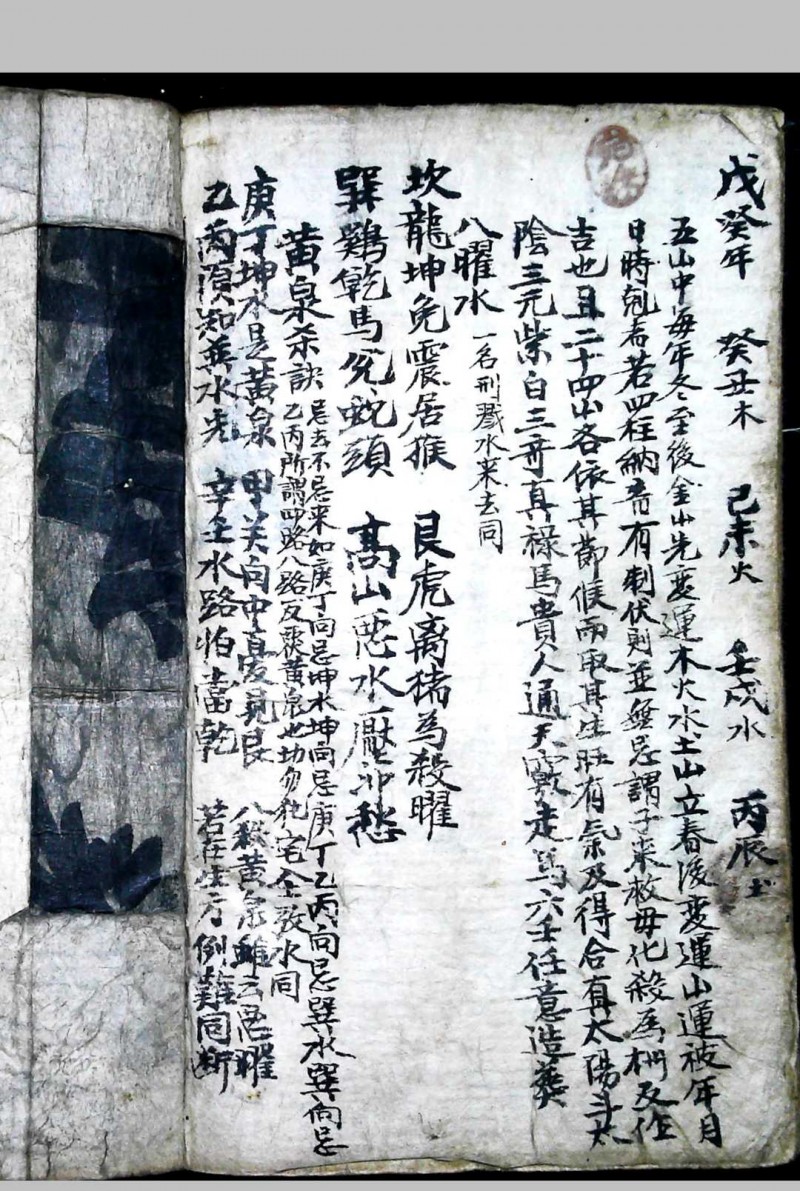 戊癸年 癸丑木 己未火 壬戌水 丙辰土
五山中每年冬至後金山先变運木火水土山立春後变運山運被年月
日時尅者若四柱納音有制伏則並無忌謂子来救母化殺爲权反作
吉也且二十四山各依其節候而取其生旺有氣及得合有太陽斗太
陰三元紫白三奇真祿馬貴人通天竅走馬六壬任意造葬
八曜水 一名刑戮水来去同
坎龍坤兔震居猴 艮虎离猪為殺曜
巽鷄乾馬兌蛇頭 高山惡水壓沖愁
黄泉杀訣 忌去不忌来如庚丁向忌坤水坤向忌庚丁乙丙向忌巽水巽向忌
乙丙所謂四路八路反談黄泉也切勿犯宅仝放水同
庚丁坤水是黄泉 甲癸向中憂見艮 八殺黄泉雖云惡曜
乙丙須知巽水先 辛壬水路怕當乾 若在生方例難同断